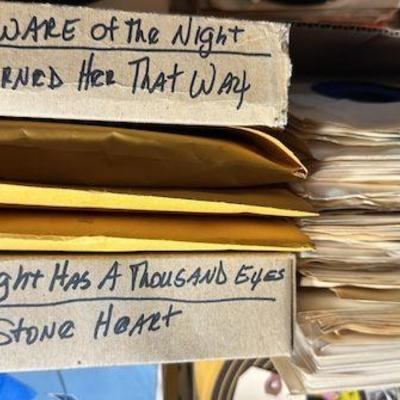 WARE of the Night
RNED HER THAT WAY
ght HAS A THOUSAND EyES
STONE HEART